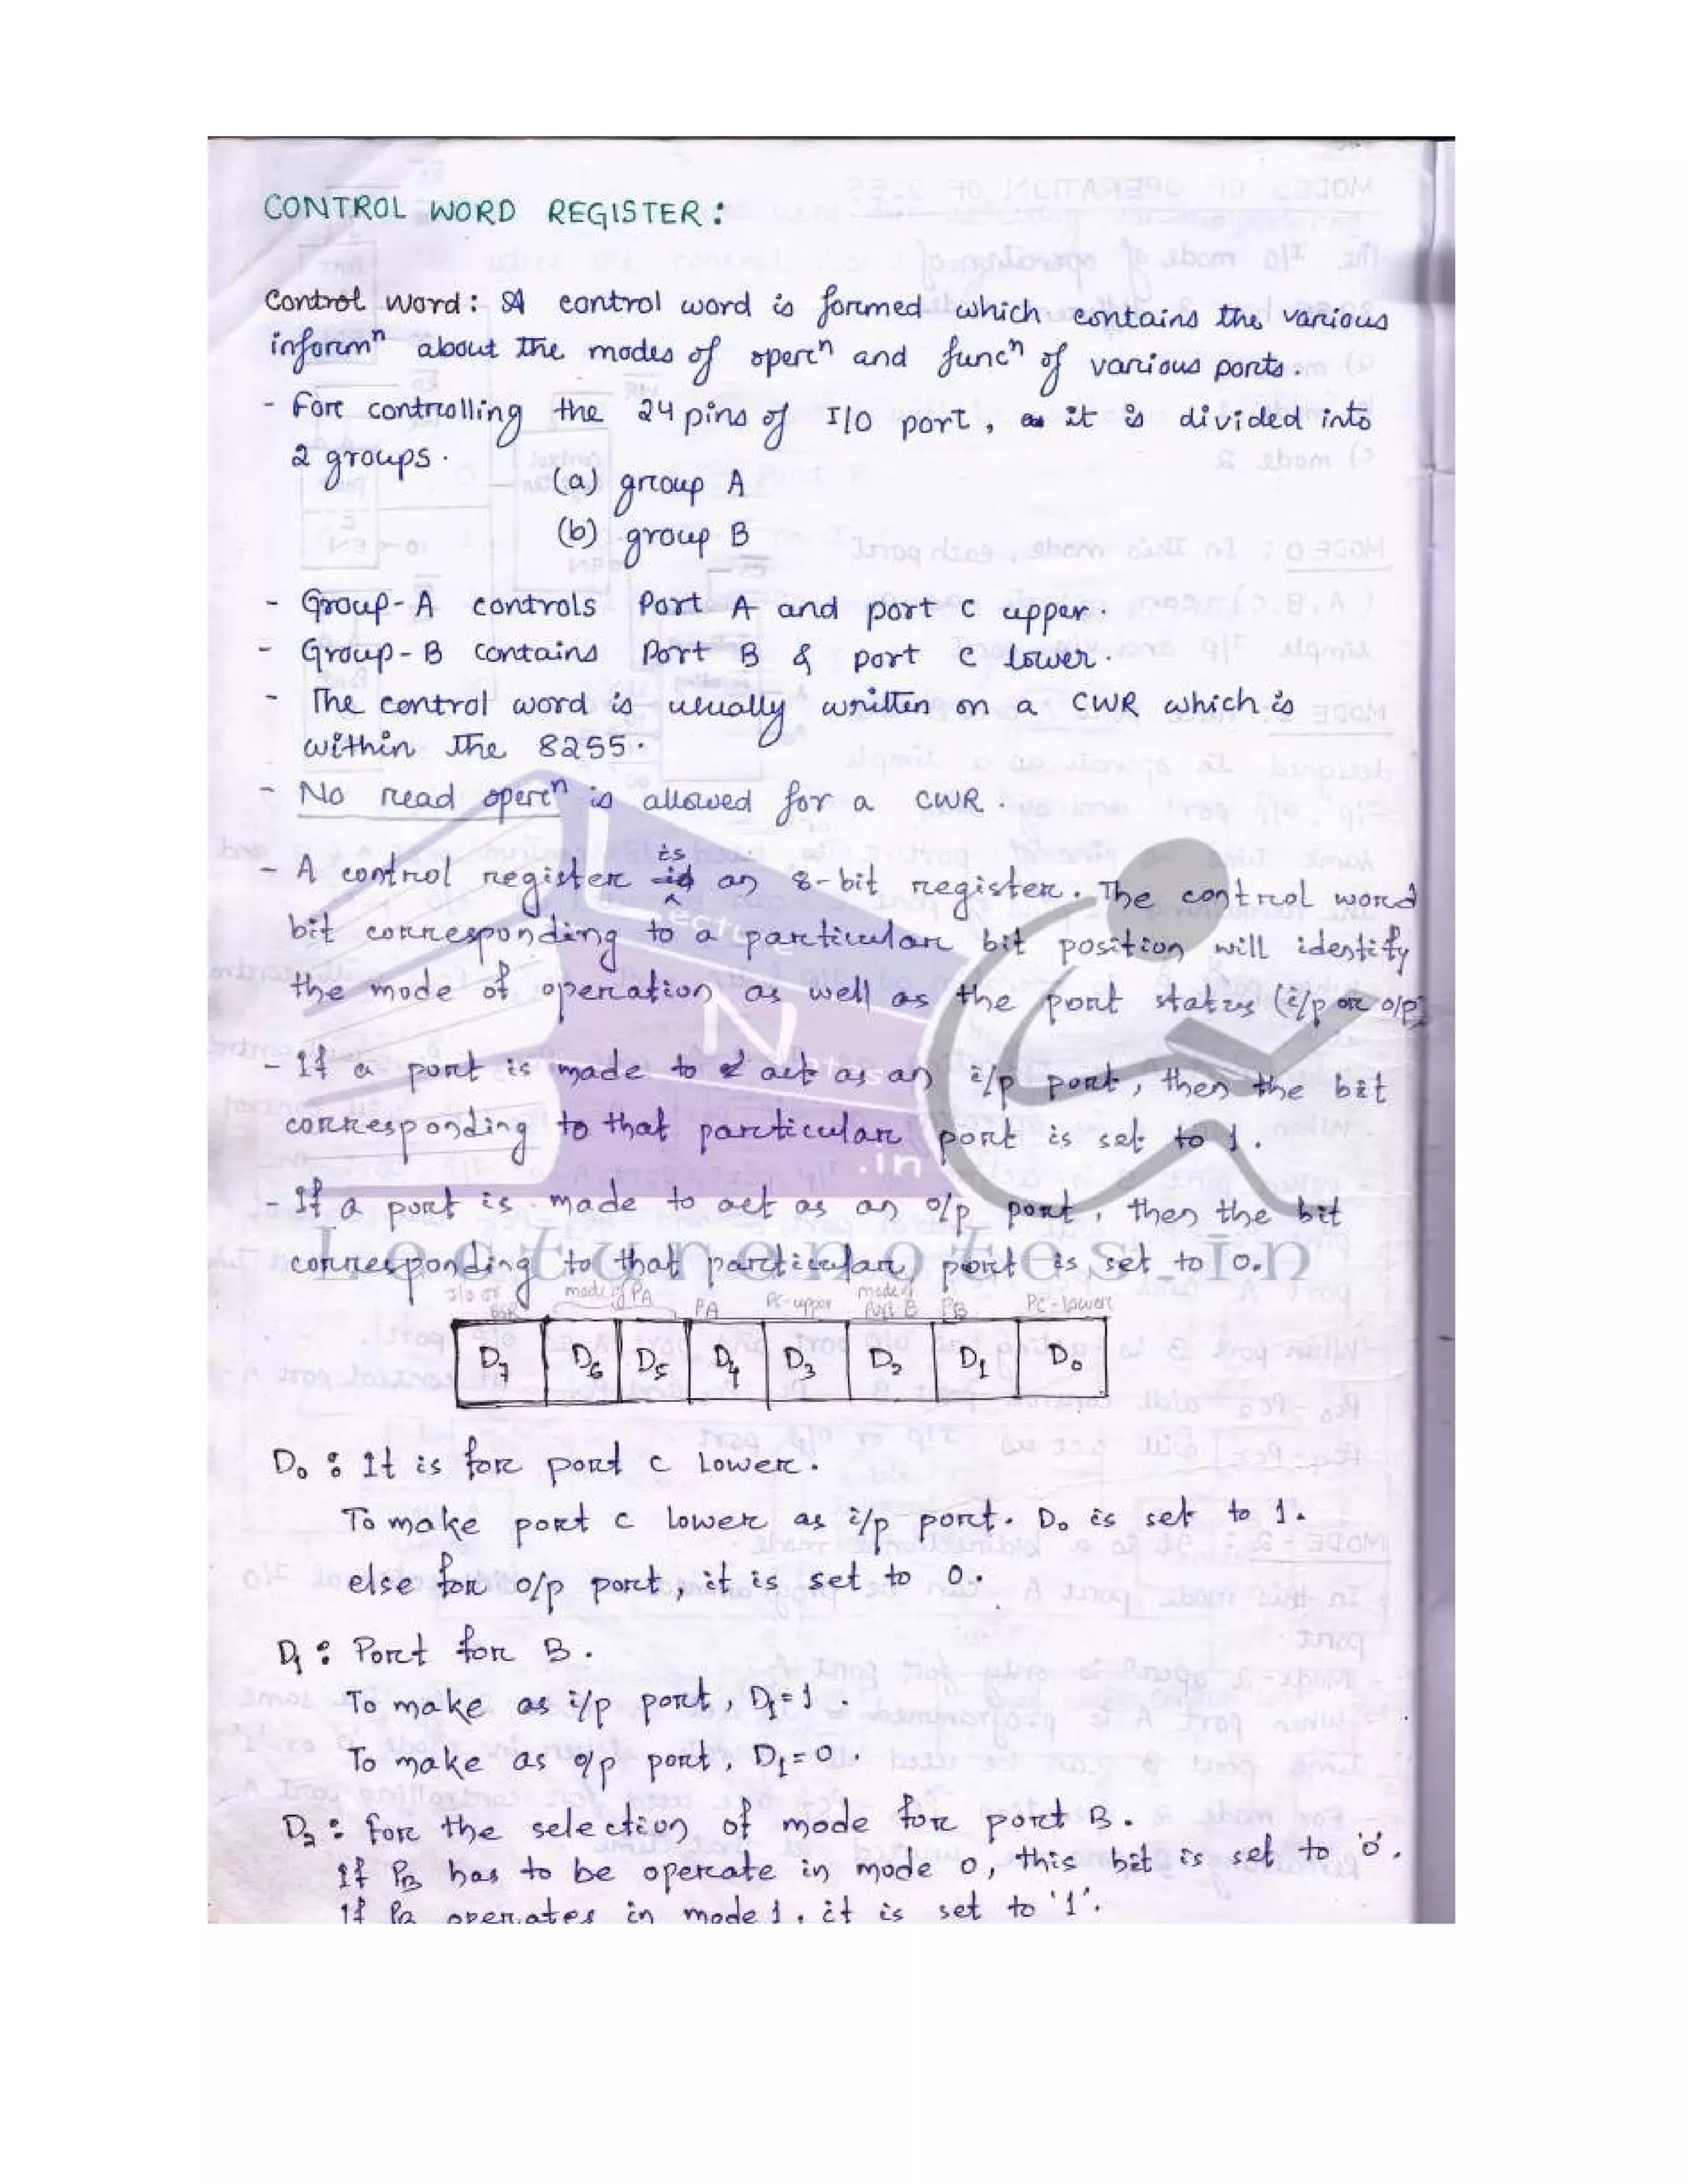 CONTROL WORD REGISTER :
Control Word : A control word is formed which contains the various
informⁿ about the modes of opernⁿ and funcⁿ of various ports.
- For controlling the 24 pins of I/O port, it is divided into
2 groups.
(a) group A
(b) group B
- Group-A controls Port A and port C upper.
- Group-B contains Port B & port C lower.
- The control word is usually written on a CWR which is
within the 8255.
- No read opernⁿ is allowed for a CWR.
- A control register is an 8-bit register. The control word
bit corresponding to a particular bit position will identify
the mode of operation as well as the port status (i/p or o/p)
- If a port is made to act as an i/p port, then the bit
corresponding to that particular port is set to 1.
- If a port is made to act as an o/p port, then the bit
corresponding to that particular port is set to 0.
I/O or BSR mode of PA PA PC-upper mode of Port B PB PC-lower
D7 D6 D5 D4 D3 D2 D1 D0
D0 : It is for port C Lower.
To make port C lower as i/p port. D0 is set to 1.
else for o/p port, it is set to 0.
D1 : Port for B.
To make as i/p port, D1=1.
To make as o/p port, D1=0.
D2 : for the selection of mode for port B.
If PB has to be operate in mode 0, this bit is set to '0'.
If PB operates in mode 1, it is set to '1'.
Lecture Notes .in
Lecturenotes.in